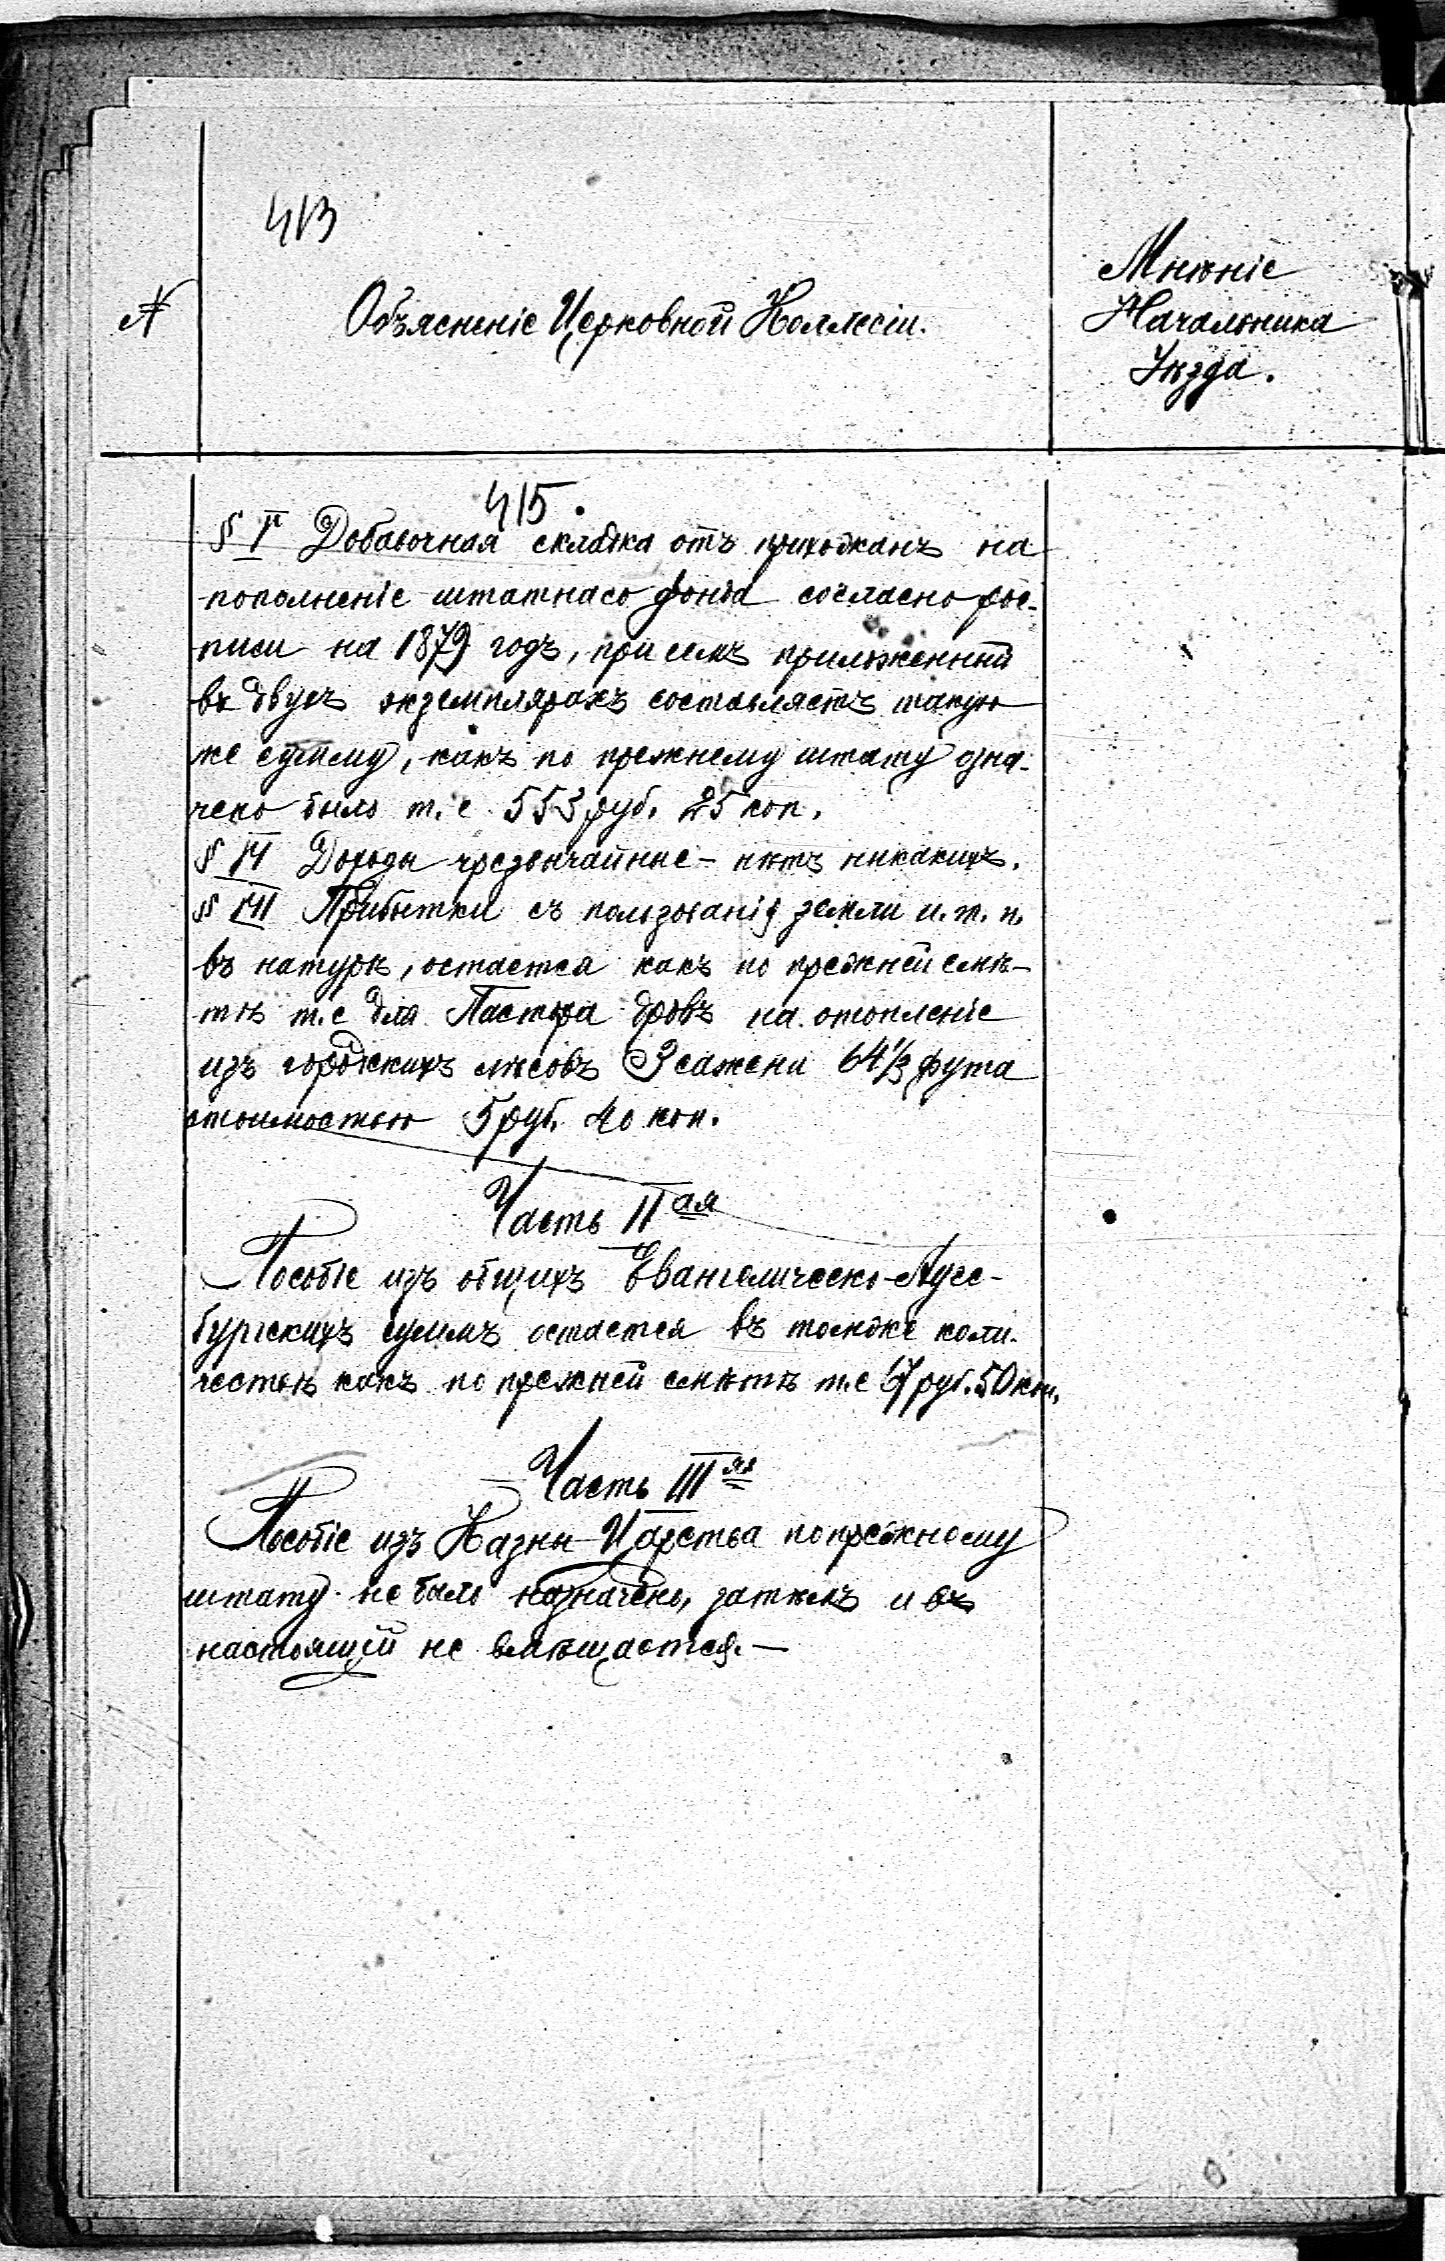 413
№
Объясненіе Церковной Коллегіи.
Мнѣніе
Начальника
Уѣзда.
415.
§ V Добавочная складка отъ прихожанъ на
пополненіе штатнаго фонда согласно рос-
писи на 1879 годъ, при семъ приложенной
въ двухъ экземплярахъ составляетъ такую
же сумму, какъ по прежнему штату озна-
чено было т. е. 553 руб. 25 коп.
§ VI Доходы чрезвычайные - нѣтъ никакихъ.
§ VII Прибытки съ пользованія земли и. т. п.
въ натурѣ, остается какъ по прежней смѣ-
тѣ т. е для Пастыра дровъ на отопленіе
изъ городскихъ лѣсовъ 3 сажени 64 1/3 фута
стоимостью 5 руб. 40 коп.
Часть II ая
Пособіе изъ общихъ Евангелическо-Аугс-
бургскихъ суммъ остается въ томже коли-
чествѣ какъ по прежней смѣтѣ т. е 67 руб. 50 коп.
Часть III яя
Пособіе изъ Казны Царства по прежному
штату не было назначено, затѣмъ и въ
настоящій не вмѣщается. —